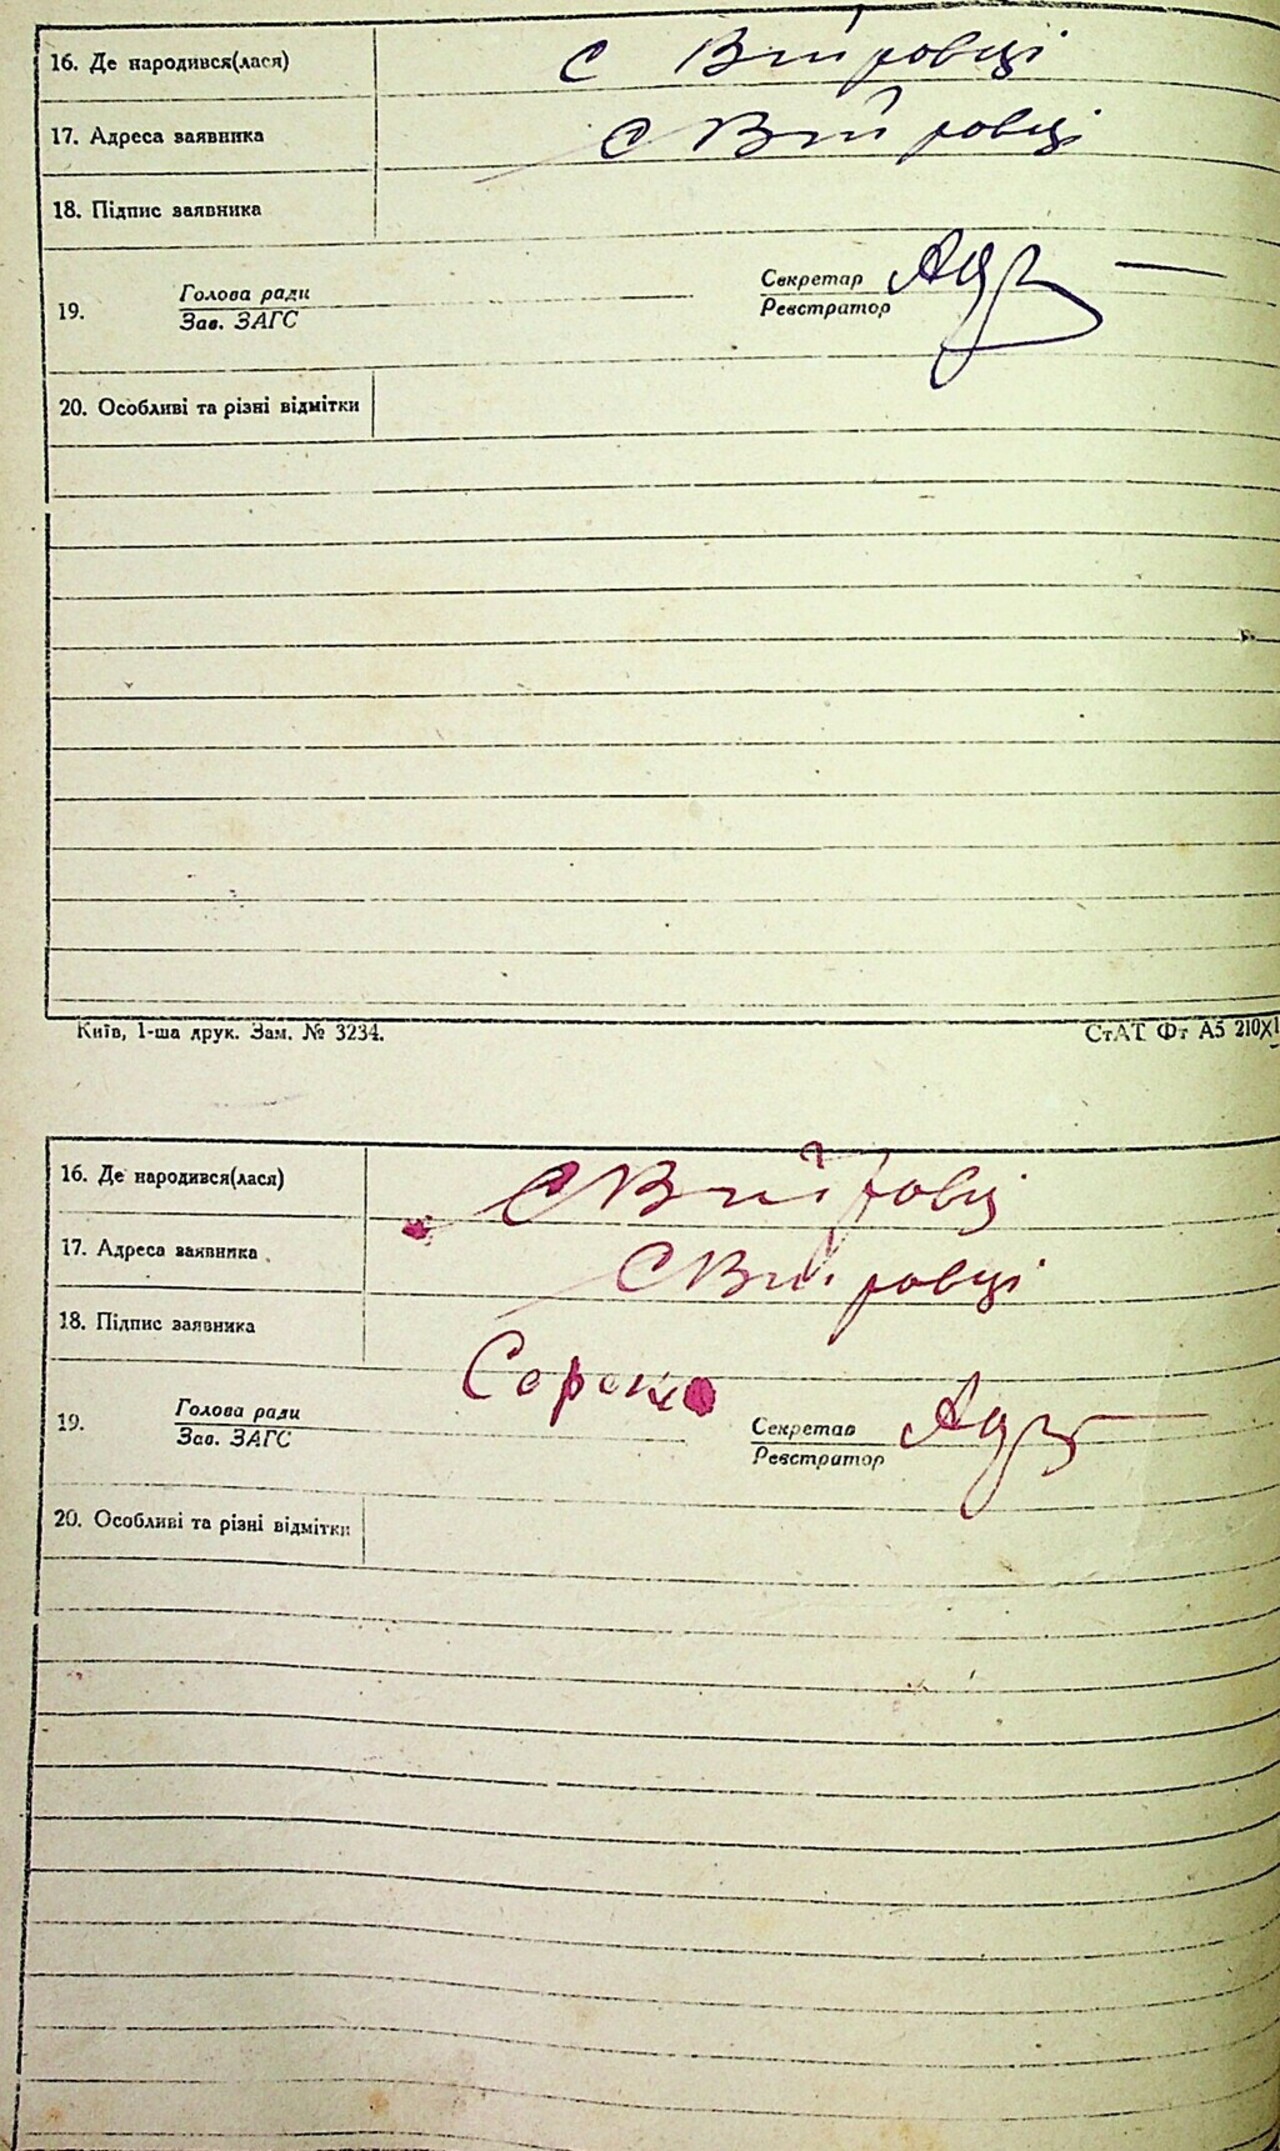 16. Де народився(лася) с Війтовці
17. Адреса заявника с Війтовці
18. Підпис заявника
19. Голова ради
Зав. ЗАГС
Секретар
Реєстратор
20. Особливі та різні відмітки
Київ, 1-ша друк. Зам. № 3234. СтАТ Фт А5 210X1
16. Де народився(лася) с Війтовці
17. Адреса заявника с Війтовці
18. Підпис заявника
Сорока
19. Голова ради
Зав. ЗАГС
Секретар
Реєстратор
20. Особливі та різні відмітки